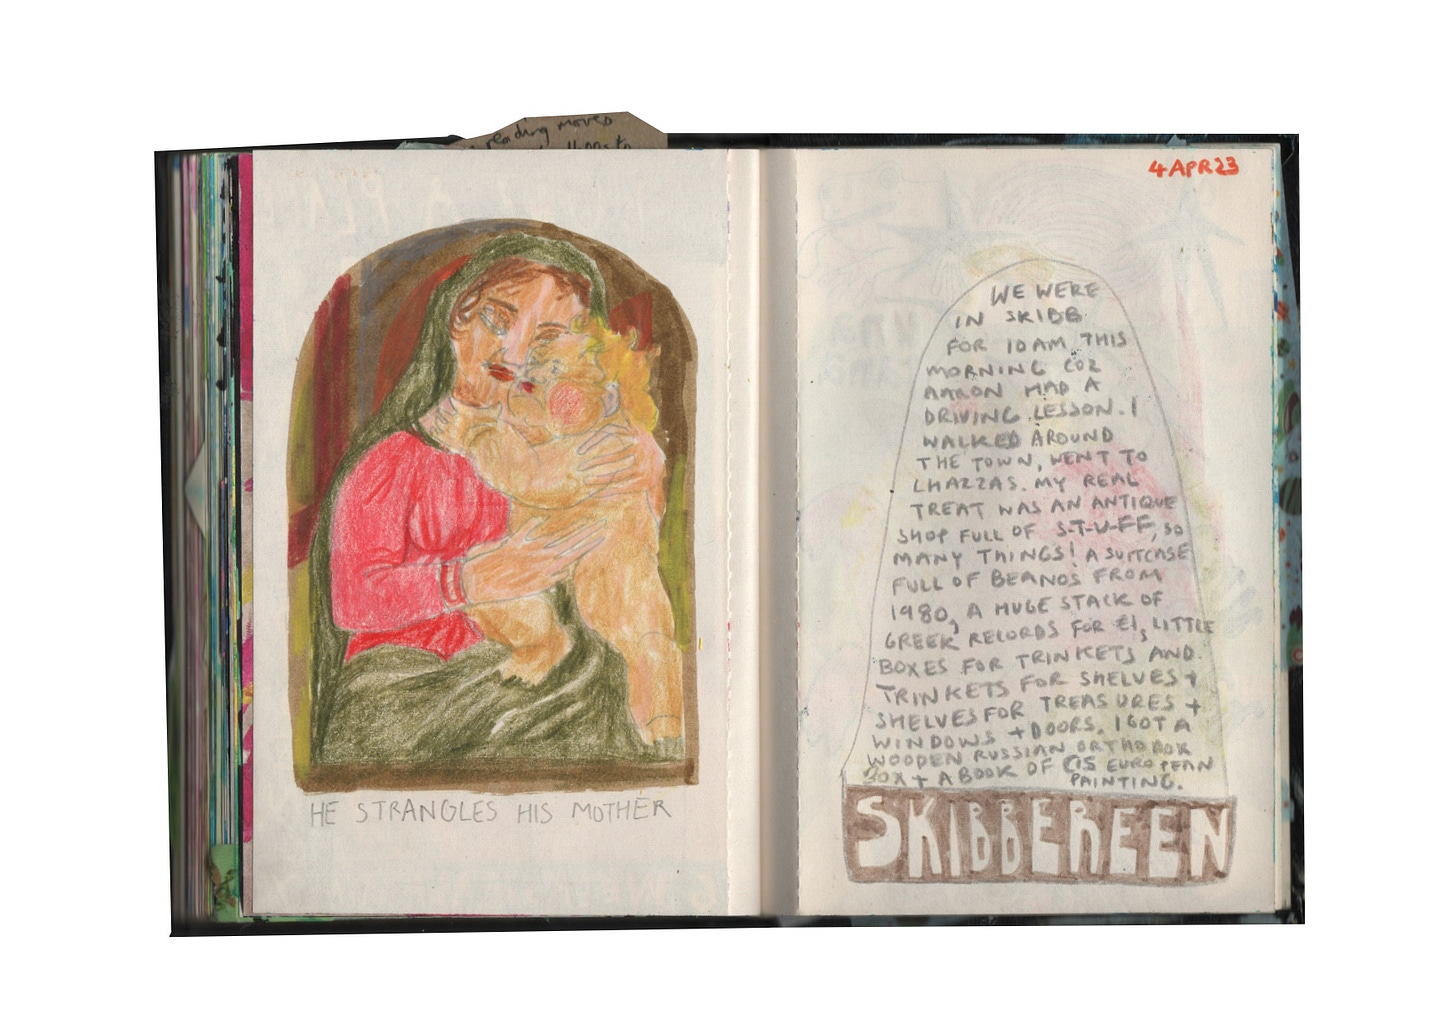 reading moved
HE STRANGLES HIS MOTHER
4 APR 23
WE WERE
IN SKIBB
FOR 10AM THIS
MORNING COZ
AARON HAD A
DRIVING LESSON. I
WALKED AROUND
THE TOWN, WENT TO
CHAZZAS. MY REAL
TREAT WAS AN ANTIQUE
SHOP FULL OF S-T-U-FF, SO
MANY THINGS! A SUITCASE
FULL OF BEANOS FROM
1980, A HUGE STACK OF
GREEK RECORDS FOR €1, LITTLE
BOXES FOR TRINKETS AND
TRINKETS FOR SHELVES +
SHELVES FOR TREASURES +
WINDOWS + DOORS. I GOT A
WOODEN RUSSIAN ORTHODOX
BOX + A BOOK OF C15 EUROPEAN
PAINTING.
SKIBBEREEN